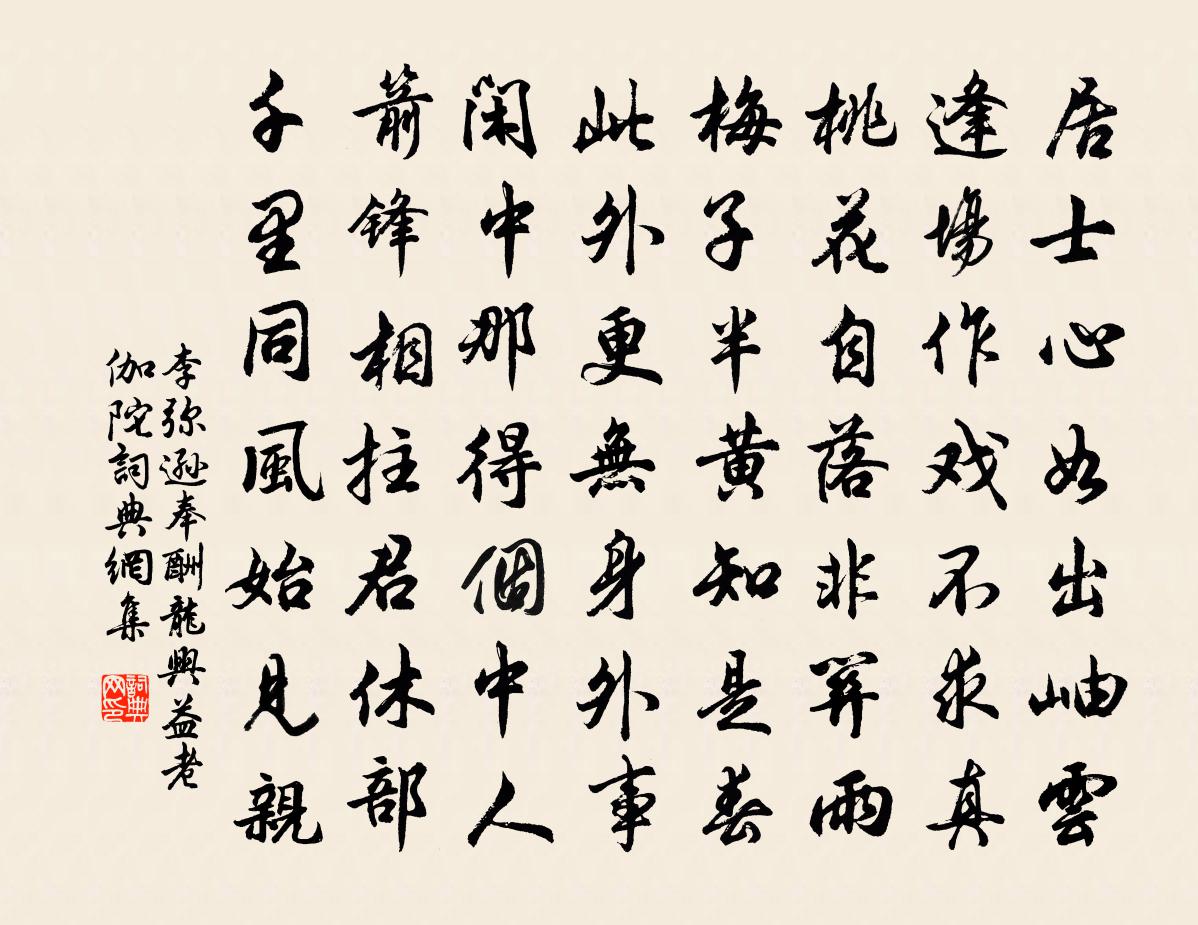 居士心如出岫雲
逢場作戏不求真
桃花自落非關雨
梅子半黄知是春
此外更無身外事
閑中那得個中人
箭鋒相拄君休部
千里同風始見親
李弥遜奉酬龍興益老
伽陀詞典網集
詞典网印